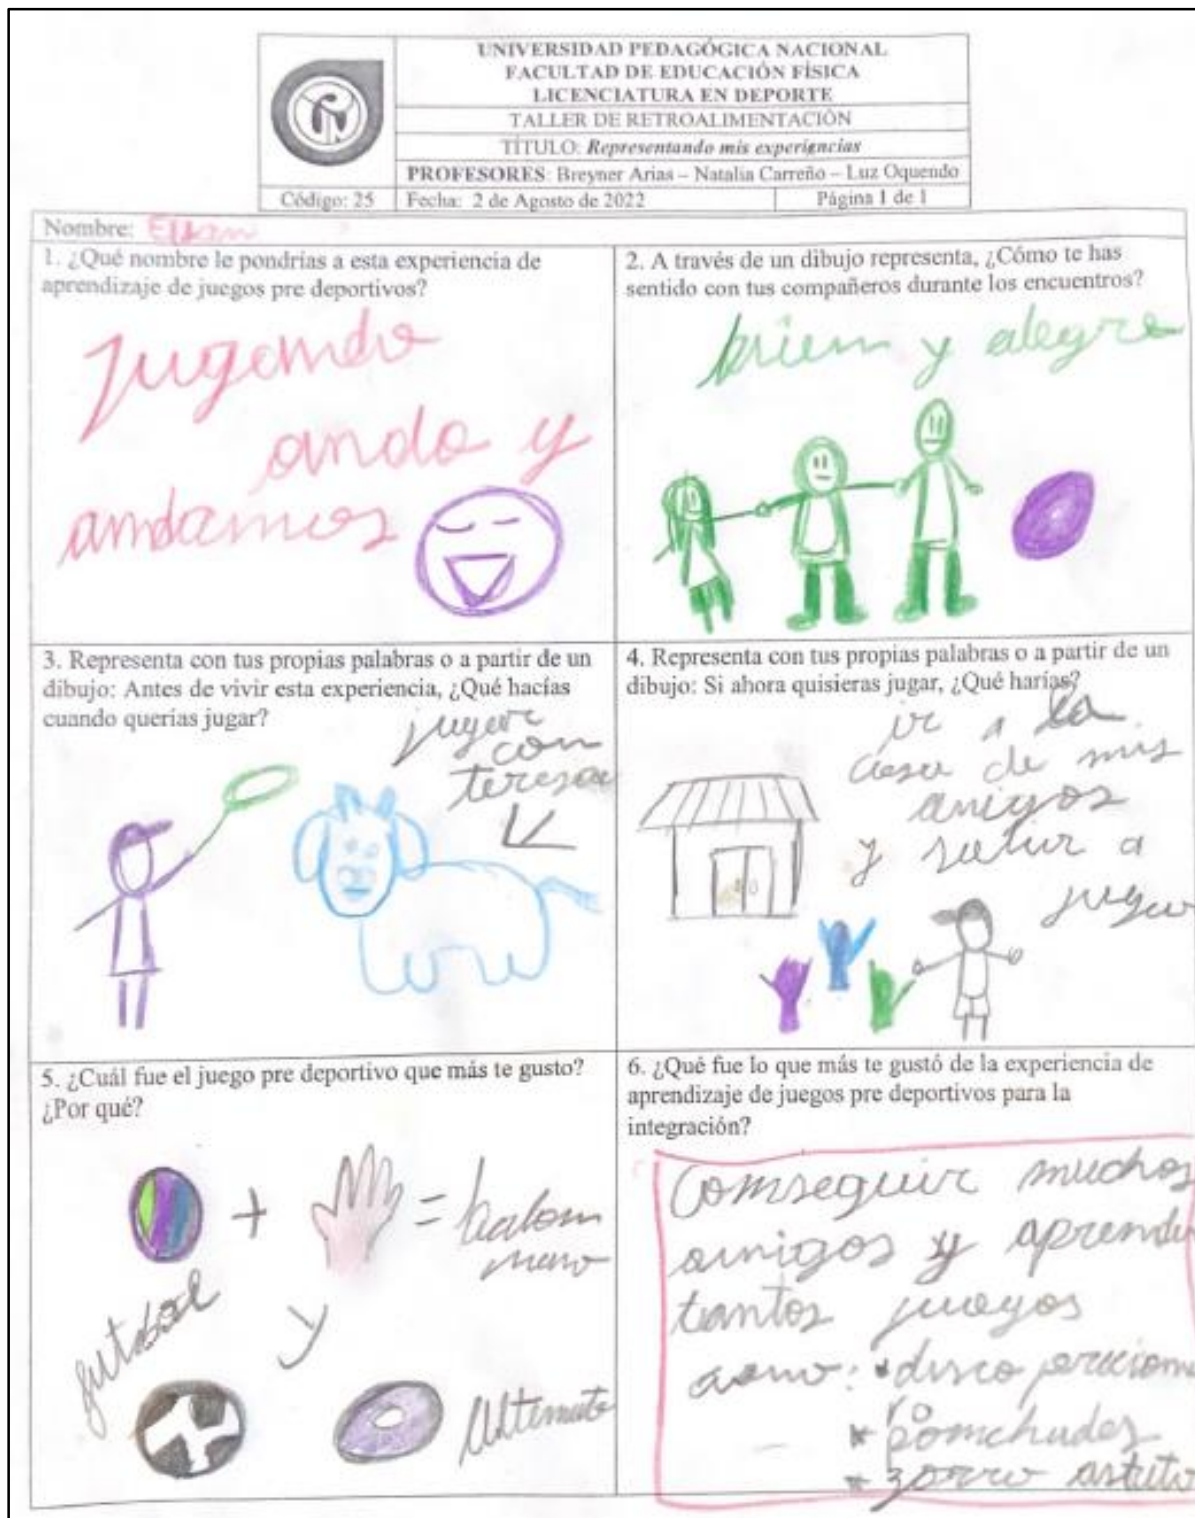 UNIVERSIDAD PEDAGÓGICA NACIONAL
FACULTAD DE EDUCACIÓN FÍSICA
LICENCIATURA EN DEPORTE
TALLER DE RETROALIMENTACIÓN
TÍTULO: Representando mis experiencias
PROFESORES: Breyner Arias – Natalia Carreño – Luz Oquendo
Código: 25 Fecha: 2 de Agosto de 2022 Página 1 de 1
Nombre:
1. ¿Qué nombre le pondrías a esta experiencia de
aprendizaje de juegos pre deportivos?
jugando
ando y
andamos
2. A través de un dibujo representa, ¿Cómo te has
sentido con tus compañeros durante los encuentros?
bien y alegre
3. Representa con tus propias palabras o a partir de un
dibujo: Antes de vivir esta experiencia, ¿Qué hacías
cuando querías jugar?
jugar
con
teresa
4. Representa con tus propias palabras o a partir de un
dibujo: Si ahora quisieras jugar, ¿Qué harías?
ir a la
casa de mis
amigos
y salir a
jugar
5. ¿Cuál fue el juego pre deportivo que más te gusto?
¿Por qué?
+ = balon
mano
futbol
y
Ultimate
6. ¿Qué fue lo que más te gustó de la experiencia de
aprendizaje de juegos pre deportivos para la
integración?
Conseguir muchos
amigos y aprender
tantos juegos
como: * disco
* ponchados
* zorro astuto